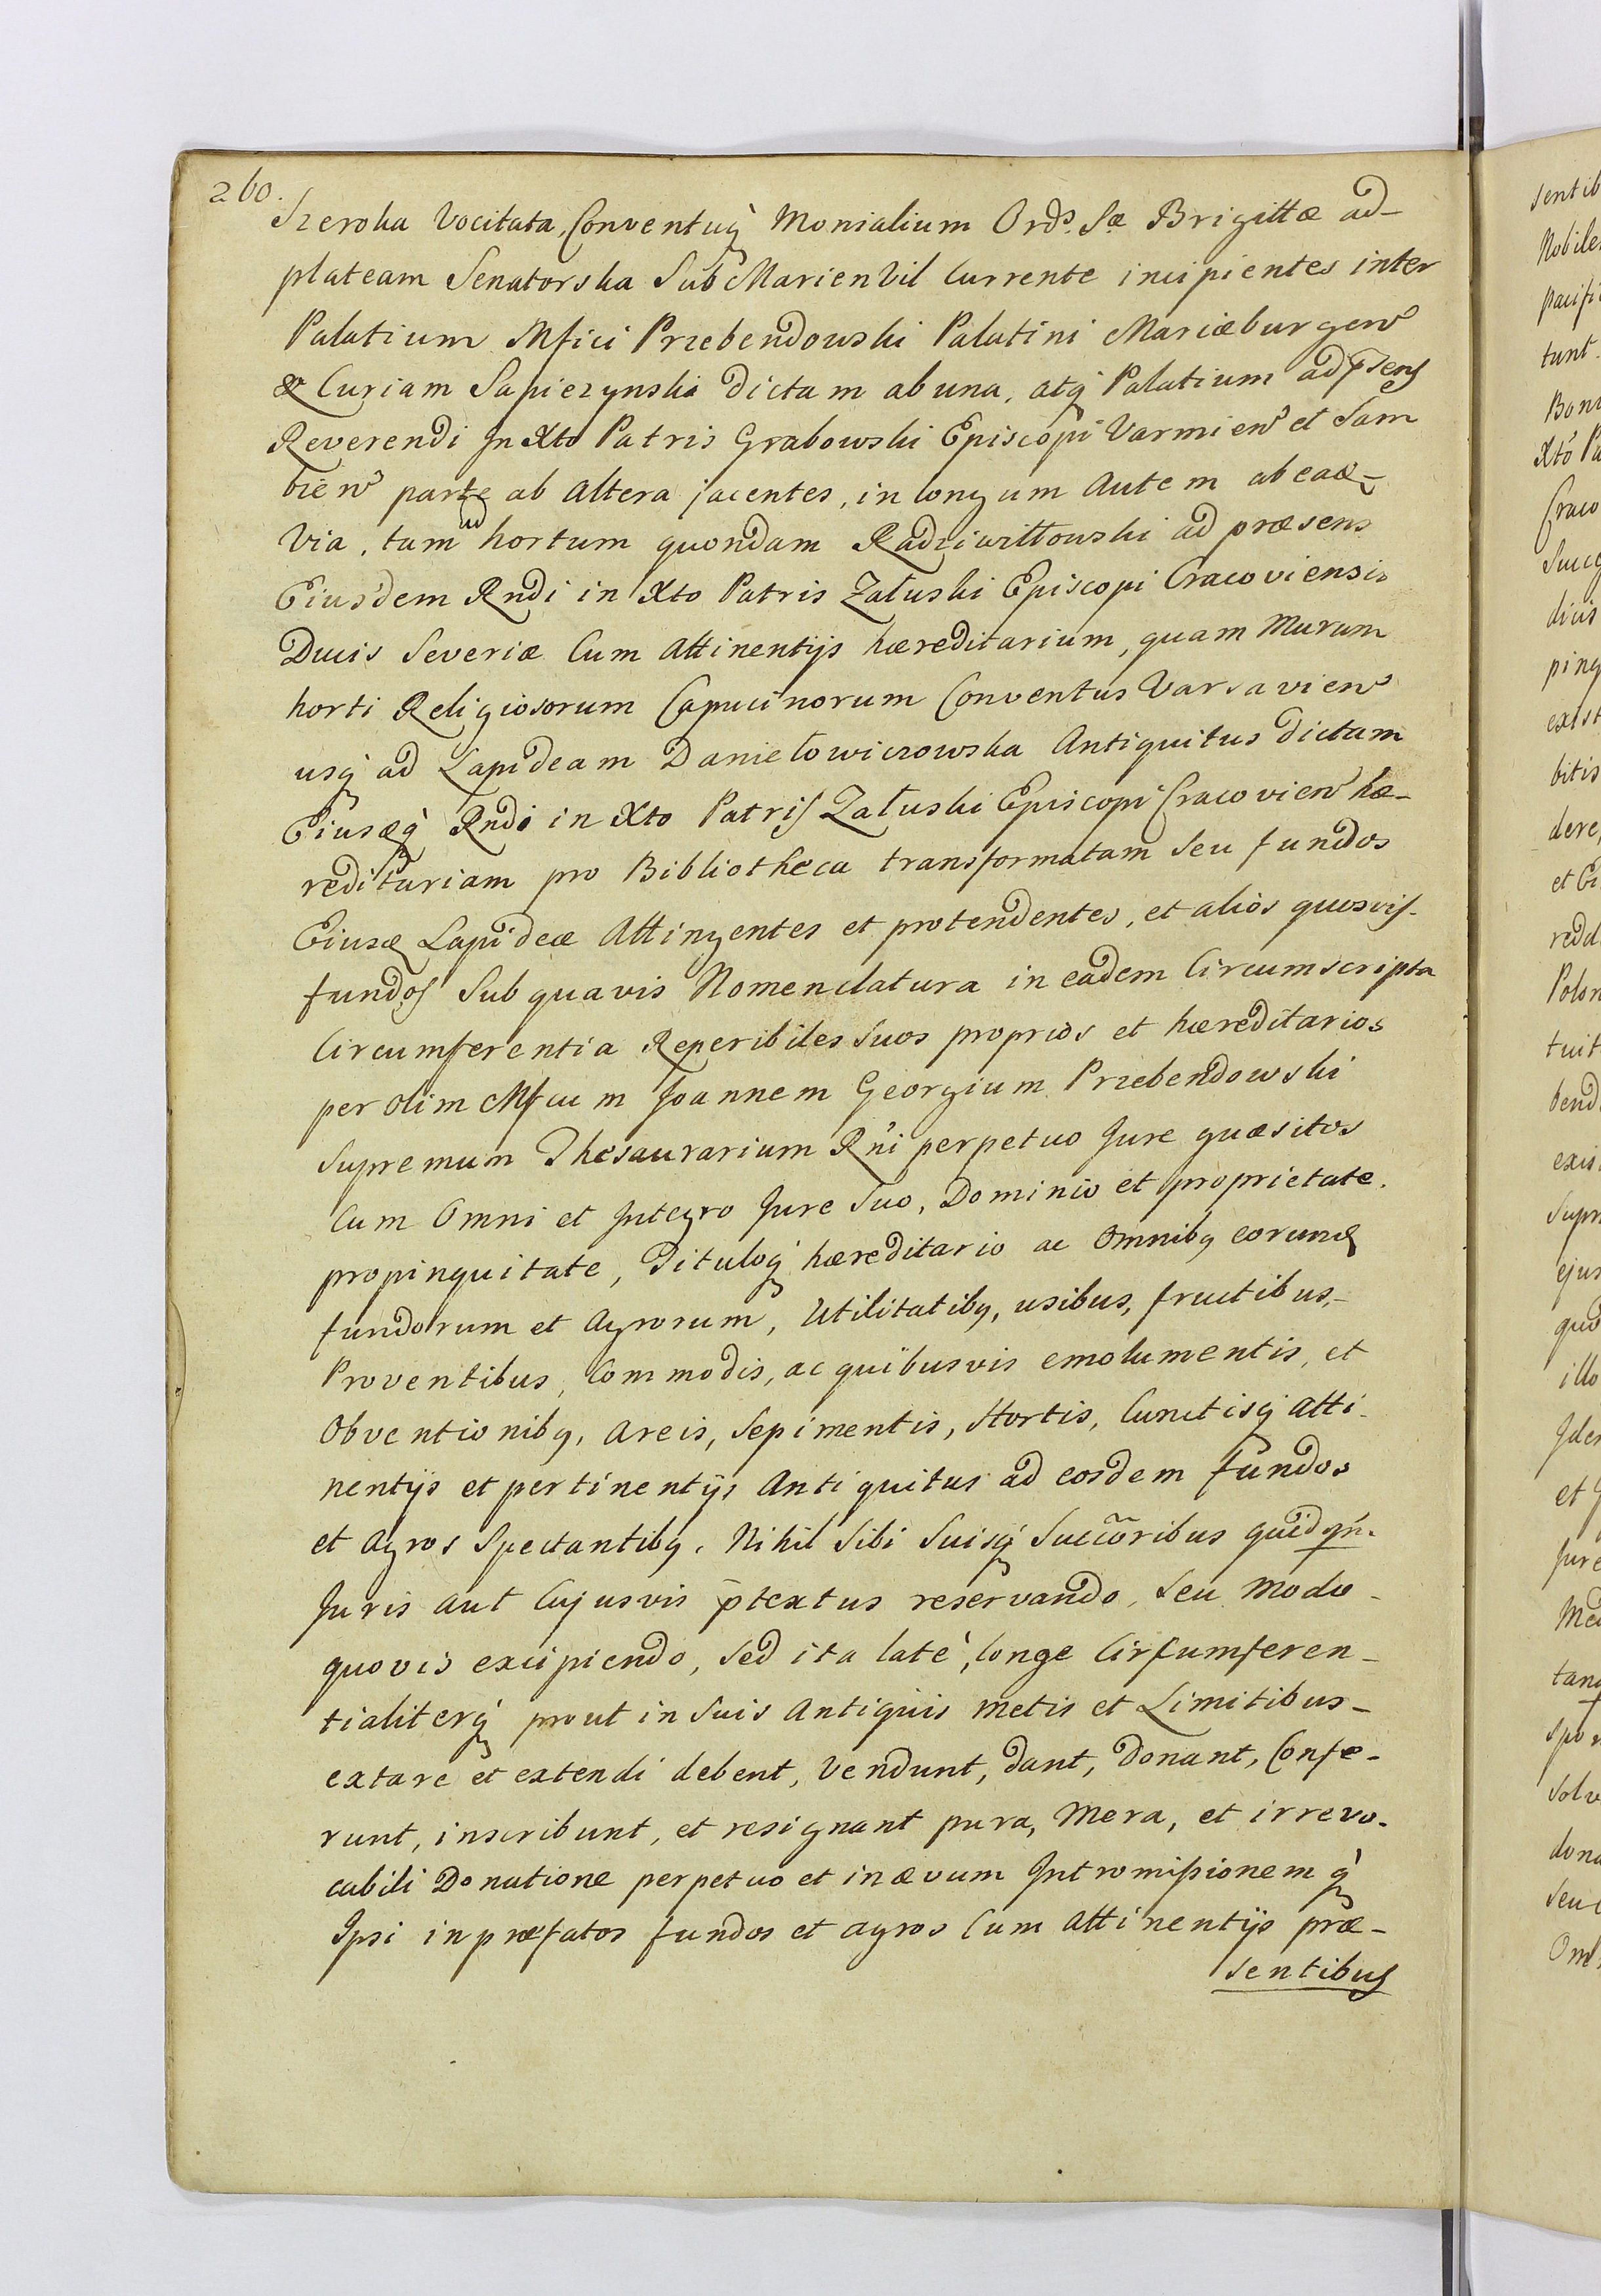 260.
Szeroka Vocitata, Conventuq̀ Monialium Ords. Sæ Brigittæ ad-
plateam Senatorska Sub Marienvil Currente incipientes inter
Palatium Mfici Przebendowski Palatini Mariæburgen
& Curiam Sapiezynski dictam ab una, atq̀ Palatium ad p̄sens
Reverendi In Xto Patris Grabowski Episcopi Varmien et Sam
bien parte ab Altera jacentes, in longum Autem ab eadē
Via, tam ad hortum quondam Radziwiłłowski ad præsens
Eiusdem Rndi in Xto Patris Załuski Episcopi Cracoviensis
Ducis Severiæ Cum Attinentijs hæreditarium, quam Murum
horti Religiosorum Capucinorum Conventus Varsavien
usq̀ ad Lapideam Daniełowiczowska Antiquitus dictam
Eiusdēq̀ Rndi in Xto Patris Załuski Episcopi Cracovien hæ-
reditariam pro Bibliotheca transformatam Seu fundos
Eiusdē Lapideæ Attingentes et protendentes, et alios quosvis-
fundos Sub quavis Nomenclatura in eadem Circumscripta
Circumferentia Reperibiles Suos proprios et hæreditarios
per olim Mfcum Joannem Georgium Przebendowski
Supremum Thesaurarium Rni perpetuo Jure quæsitos
Cum Omni et Integro Jure Suo, Dominio et proprietate.
propinquitate, Tituloq̀ hæreditario ac Omnibq eorundē
fundorum et Agrorum, Utilitatibq, usibus, fructibus,-
Proventibus, Commodis, ac quibusvis emolumentis, et
Obventionibq, Areis, Sepimentis, Hortis, Cunctisq̀ Atti-
nentijs et pertinentijs Antiquitus ad eosdem fundos
et Agros Spectantibq. Nihil Sibi Suisq̀ Succōribus quidqn̄.
Juris aut Cujusvis p̄textus reservando, Seu Modo-
quovis excipiendo, Sed ita latè, longe Circumferen-
tialiterq̀ prout in Suis Antiquis metis et Limitibus-
extare et extendi debent, Vendunt, dant, Donant, Confe-
runt, inscribunt, et resignant pura, Mera, et irrevo-
cabili Donatione perpetuo et in ævum Intromissionem q̀
Ipsi in præfatos fundos et agros Cum Attinentijs præ-
Sentibus